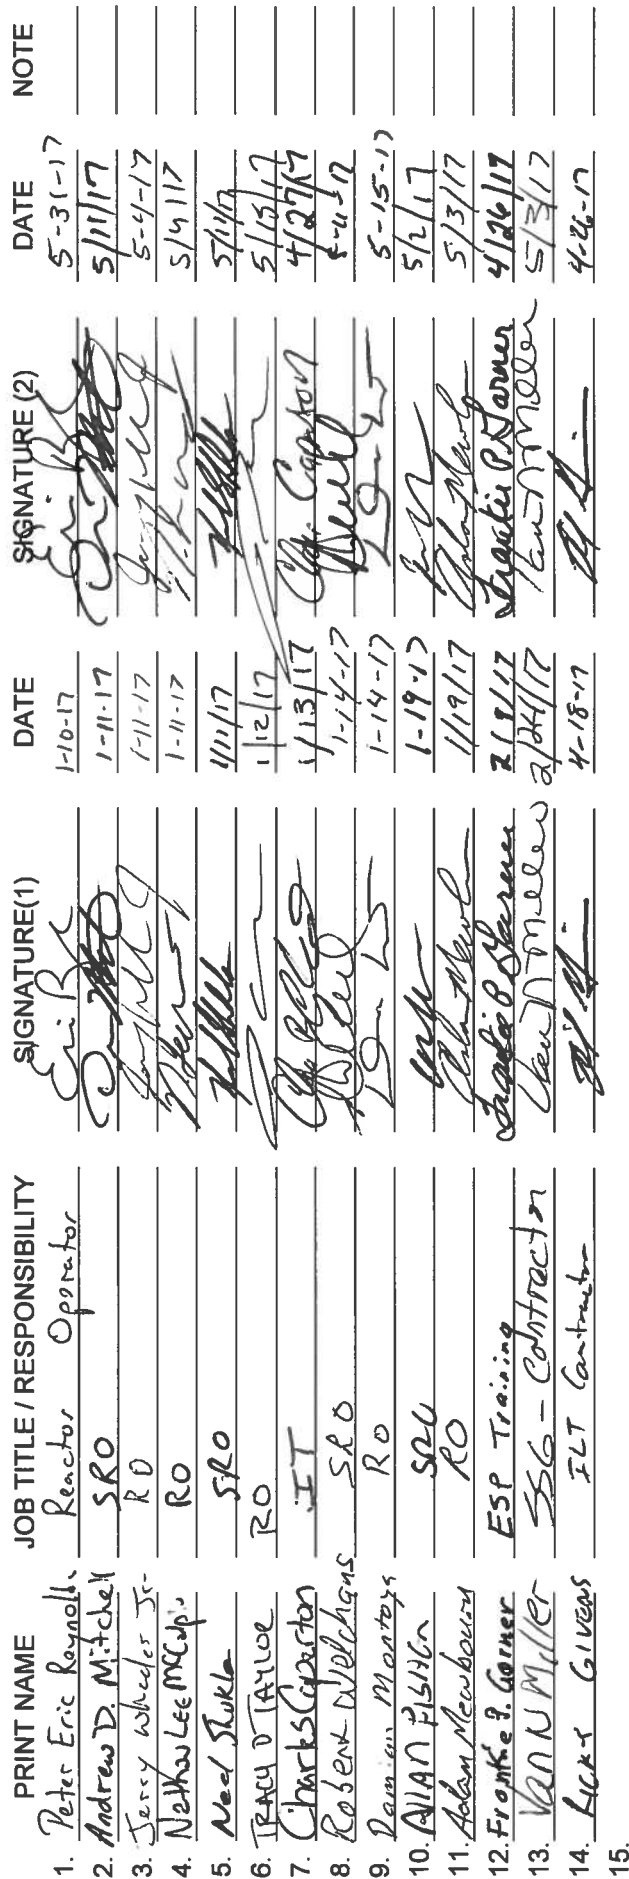 PRINT NAME JOB TITLE / RESPONSIBILITY SIGNATURE(1) DATE SIGNATURE (2) DATE NOTE
1. Peter Eric Reynolds Reactor Operator 1-10-17 5-31-17
2. Andrew D. Mitchell SRO 1-11-17 5/11/17
3. Jerry Wheeler Jr. RO 1-11-17 5-4-17
4. Nathan Lee RO 1-11-17 5/4/17
5. Neel Shukla SRO 1/11/17 5/11/17
6. TRACY D TAYLOR RO 1/12/17 5/15/17
7. Charles Caperton IT 1/13/17 4/27/17
8. Robert Welchans SRO 1-14-17
9. Damian Montoya RO 1-14-17 5-15-17
10. AllAN FISHER SRO 1-19-17 5/2/17
11. Adam Newbourn RO 1/19/17 5/3/17
12. Frankie P. Garner ESP Training Frankie P Garner Frankie P. Garner 4/26/17
13. Van N Miller SSG - Contractor Van N Miller 2/24/17 Van N Miller 5/3/17
14. RICKY GIVENS ILT Contractor 4-18-17 4-26-17
15.